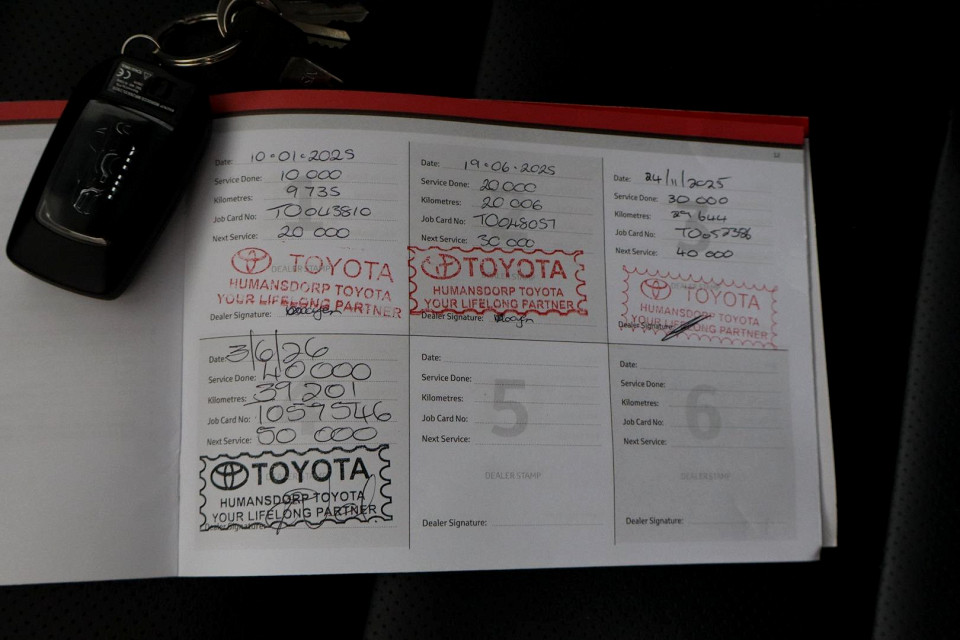 12
Date: 10.01.2025
Service Done: 10 000
Kilometres: 9 735
Job Card No: TO043810
Next Service: 20 000
DEALER STAMP
TOYOTA
HUMANSDORP TOYOTA
YOUR LIFELONG PARTNER
Dealer Signature:
Date: 19.06.2025
Service Done: 20 000
Kilometres: 20 006
Job Card No: TO048057
Next Service: 30 000
TOYOTA
HUMANSDORP TOYOTA
YOUR LIFELONG PARTNER
Dealer Signature:
Date: 24/11/2025
Service Done: 30 000
Kilometres: 29 644
Job Card No: TO052386
Next Service: 40 000
TOYOTA
HUMANSDORP TOYOTA
YOUR LIFELONG PARTNER
Dealer Signature:
Date: 3/6/26
Service Done: 40000
Kilometres: 39 201
Job Card No: 1057546
Next Service: 50 000
TOYOTA
HUMANSDORP TOYOTA
YOUR LIFELONG PARTNER
Dealer Signature:
Date:
Service Done:
Kilometres:
Job Card No:
Next Service:
5
DEALER STAMP
Dealer Signature:
Date:
Service Done:
Kilometres:
Job Card No:
Next Service:
6
DEALER STAMP
Dealer Signature: